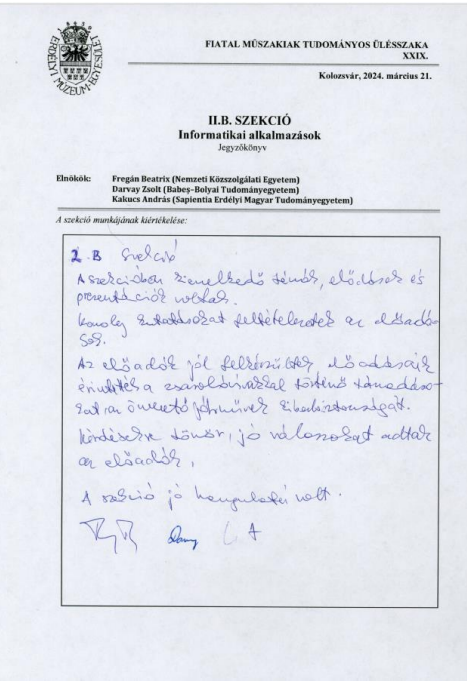 ERDÉLYI MÚZEUM-EGYESÜLET
FIATAL MŰSZAKIAK TUDOMÁNYOS ÜLÉSSZAKA
XXIX.
Kolozsvár, 2024. március 21.
II.B. SZEKCIÓ
Informatikai alkalmazások
Jegyzőkönyv
Elnökök: Fregán Beatrix (Nemzeti Közszolgálati Egyetem)
Darvay Zsolt (Babeş–Bolyai Tudományegyetem)
Kakucs András (Sapientia Erdélyi Magyar Tudományegyetem)
A szekció munkájának kiértékelése:
2. B Szekció
A szekcióban kiemelkedő témák, előadások és
prezentációk voltak.
Komoly kutatásokat feltételeztek az előadá-
sok.
Az előadók jól felkészültek, előadásaik
érintették a zsarolóvírussal történő támadáso-
kat az önvezető járművek kiberbiztonságát.
Kérdésekre tömör, jó válaszokat adtak
az előadók.
A szekció jó hangulatú volt.